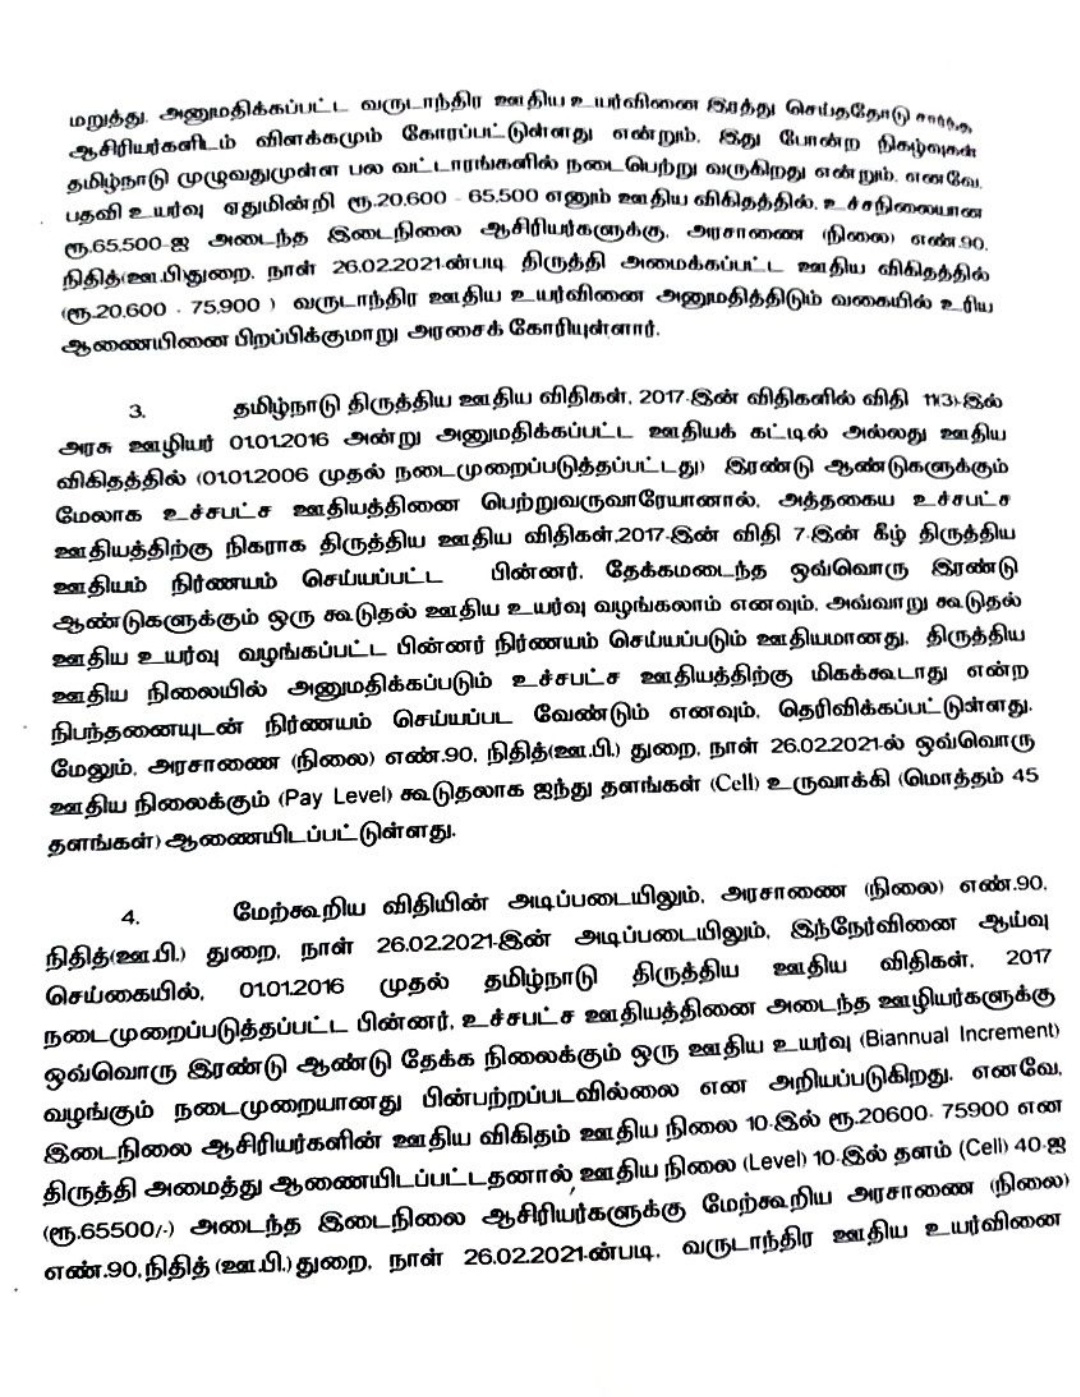 மறுத்து, அனுமதிக்கப்பட்ட வருடாந்திர ஊதிய உயர்வினை இரத்து செய்ததோடு சார்ந்த
ஆசிரியர்களிடம் விளக்கமும் கோரப்பட்டுள்ளது என்றும், இது போன்ற நிகழ்வுகள்
தமிழ்நாடு முழுவதுமுள்ள பல வட்டாரங்களில் நடைபெற்று வருகிறது என்றும், எனவே,
பதவி உயர்வு ஏதுமின்றி ரூ.20,600 - 65,500 எனும் ஊதிய விகிதத்தில், உச்சநிலையான
ரூ.65,500-ஐ அடைந்த இடைநிலை ஆசிரியர்களுக்கு, அரசாணை (நிலை) எண்.90,
நிதித்(ஊ.பி)துறை, நாள் 26.02.2021-ன்படி திருத்தி அமைக்கப்பட்ட ஊதிய விகிதத்தில்
(ரூ.20,600 - 75,900 ) வருடாந்திர ஊதிய உயர்வினை அனுமதித்திடும் வகையில் உரிய
ஆணையினை பிறப்பிக்குமாறு அரசைக் கோரியுள்ளார்.
3. தமிழ்நாடு திருத்திய ஊதிய விதிகள், 2017-இன் விதிகளில் விதி 11(3)-இல்
அரசு ஊழியர் 01.01.2016 அன்று அனுமதிக்கப்பட்ட ஊதியக் கட்டில் அல்லது ஊதிய
விகிதத்தில் (01.01.2006 முதல் நடைமுறைப்படுத்தப்பட்டது) இரண்டு ஆண்டுகளுக்கும்
மேலாக உச்சபட்ச ஊதியத்தினை பெற்றுவருவாரேயானால், அத்தகைய உச்சபட்ச
ஊதியத்திற்கு நிகராக திருத்திய ஊதிய விதிகள்,2017-இன் விதி 7-இன் கீழ் திருத்திய
ஊதியம் நிர்ணயம் செய்யப்பட்ட பின்னர், தேக்கமடைந்த ஒவ்வொரு இரண்டு
ஆண்டுகளுக்கும் ஒரு கூடுதல் ஊதிய உயர்வு வழங்கலாம் எனவும், அவ்வாறு கூடுதல்
ஊதிய உயர்வு வழங்கப்பட்ட பின்னர் நிர்ணயம் செய்யப்படும் ஊதியமானது, திருத்திய
ஊதிய நிலையில் அனுமதிக்கப்படும் உச்சபட்ச ஊதியத்திற்கு மிகக்கூடாது என்ற
நிபந்தனையுடன் நிர்ணயம் செய்யப்பட வேண்டும் எனவும், தெரிவிக்கப்பட்டுள்ளது.
மேலும், அரசாணை (நிலை) எண்.90, நிதித்(ஊ.பி.) துறை, நாள் 26.02.2021-ல் ஒவ்வொரு
ஊதிய நிலைக்கும் (Pay Level) கூடுதலாக ஐந்து தளங்கள் (Cell) உருவாக்கி (மொத்தம் 45
தளங்கள்) ஆணையிடப்பட்டுள்ளது.
4. மேற்கூறிய விதியின் அடிப்படையிலும், அரசாணை (நிலை) எண்.90,
நிதித்(ஊ.பி.) துறை, நாள் 26.02.2021-இன் அடிப்படையிலும், இந்நேர்வினை ஆய்வு
செய்கையில், 01.01.2016 முதல் தமிழ்நாடு திருத்திய ஊதிய விதிகள், 2017
நடைமுறைப்படுத்தப்பட்ட பின்னர், உச்சபட்ச ஊதியத்தினை அடைந்த ஊழியர்களுக்கு
ஒவ்வொரு இரண்டு ஆண்டு தேக்க நிலைக்கும் ஒரு ஊதிய உயர்வு (Biannual Increment)
வழங்கும் நடைமுறையானது பின்பற்றப்படவில்லை என அறியப்படுகிறது. எனவே,
இடைநிலை ஆசிரியர்களின் ஊதிய விகிதம் ஊதிய நிலை 10-இல் ரூ.20600- 75900 என
திருத்தி அமைத்து ஆணையிடப்பட்டதனால், ஊதிய நிலை (Level) 10-இல் தளம் (Cell) 40-ஐ
(ரூ.65500/-) அடைந்த இடைநிலை ஆசிரியர்களுக்கு மேற்கூறிய அரசாணை (நிலை)
எண்.90, நிதித் (ஊ.பி.) துறை, நாள் 26.02.2021-ன்படி, வருடாந்திர ஊதிய உயர்வினை